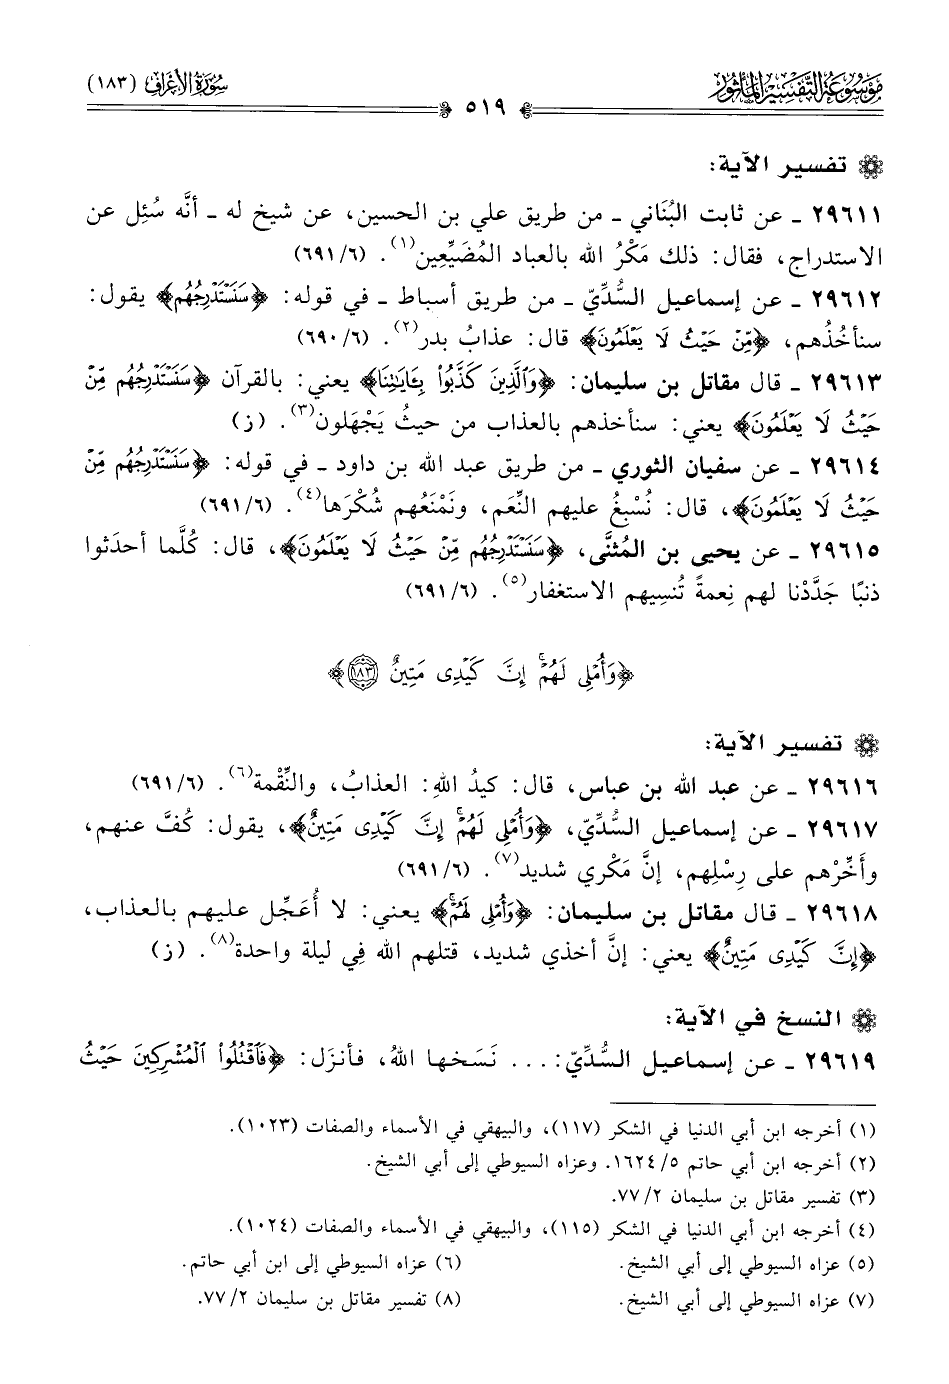 مَوْسُوعَة التَّفْسِير المَأْثُور
سُورَة الأَعْرَاف (١٨٣)
٥١٩
تفسير الآية:
٢٩٦١١ ـ عن ثابت البُنَاني ـ من طريق علي بن الحسين، عن شيخ له ـ أنَّه سُئِل عن
الاستدراج، فقال: ذلك مَكْرُ الله بالعباد المُضَيِّعِين(١). (٦٩١/٦)
٢٩٦١٢ ـ عن إسماعيل السُّدِّيّ ـ من طريق أسباط ـ في قوله: ﴿سَنَسْتَدْرِجُهُم﴾ يقول:
سنأخُذُهم، ﴿مِّنْ حَيْثُ لَا يَعْلَمُونَ﴾ قال: عذابُ بدر(٢). (٦٩٠/٦)
٢٩٦١٣ ـ قال مقاتل بن سليمان: ﴿وَالَّذِينَ كَذَّبُوا۟ بِـَٔايَـٰتِنَا﴾ يعني: بالقرآن ﴿سَنَسْتَدْرِجُهُم مِّنْ
حَيْثُ لَا يَعْلَمُونَ﴾ يعني: سنأخذهم بالعذاب من حيثُ يَجْهَلون(٣). (ز)
٢٩٦١٤ ـ عن سفيان الثوري ـ من طريق عبد الله بن داود ـ في قوله: ﴿سَنَسْتَدْرِجُهُم مِّنْ
حَيْثُ لَا يَعْلَمُونَ﴾، قال: نُسْبِغُ عليهم النِّعَم، ونَمْنَعُهم شُكْرَها(٤). (٦٩١/٦)
٢٩٦١٥ ـ عن يحيى بن المُثنَّى، ﴿سَنَسْتَدْرِجُهُم مِّنْ حَيْثُ لَا يَعْلَمُونَ﴾، قال: كُلَّما أحدَثوا
ذنبًا جَدَّدْنا لهم نِعمةً تُنسِيهم الاستغفار(٥). (٦٩١/٦)
﴿وَأُمْلِى لَهُمْ ۚ إِنَّ كَيْدِى مَتِينٌ ١٨٣﴾
تفسير الآية:
٢٩٦١٦ ـ عن عبد الله بن عباس، قال: كيدُ اللهِ: العذابُ، والنِّقْمة(٦). (٦٩١/٦)
٢٩٦١٧ ـ عن إسماعيل السُّدِّيّ، ﴿وَأُمْلِى لَهُمْ ۚ إِنَّ كَيْدِى مَتِينٌ﴾، يقول: كُفَّ عنهم،
وأَخِّرْهم على رِسْلِهم، إنَّ مَكْري شديد(٧). (٦٩١/٦)
٢٩٦١٨ ـ قال مقاتل بن سليمان: ﴿وَأُمْلِى لَهُمْ ۚ﴾ يعني: لا أُعَجِّل عليهم بالعذاب،
﴿إِنَّ كَيْدِى مَتِينٌ﴾ يعني: إنَّ أخذي شديد، قتلهم الله فِي ليلة واحدة(٨). (ز)
النسخ في الآية:
٢٩٦١٩ ـ عن إسماعيل السُّدِّيّ: ... نَسَخها اللهُ، فأنزَل: ﴿فَاقْتُلُوا۟ الْمُشْرِكِينَ حَيْثُ
(١) أخرجه ابن أبي الدنيا في الشكر (١١٧)، والبيهقي في الأسماء والصفات (١٠٢٣).
(٢) أخرجه ابن أبي حاتم ١٦٢٤/٥. وعزاه السيوطي إلى أبي الشيخ.
(٣) تفسير مقاتل بن سليمان ٧٧/٢.
(٤) أخرجه ابن أبي الدنيا في الشكر (١١٥)، والبيهقي في الأسماء والصفات (١٠٢٤).
(٥) عزاه السيوطي إلى أبي الشيخ. (٦) عزاه السيوطي إلى ابن أبي حاتم.
(٧) عزاه السيوطي إلى أبي الشيخ. (٨) تفسير مقاتل بن سليمان ٧٧/٢.